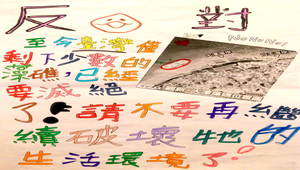 反 對
No No No!
至今臺灣僅
剩下少數的
藻礁,已經
要滅絕
了!請不要再繼
續破壞牠的
生活環境了!